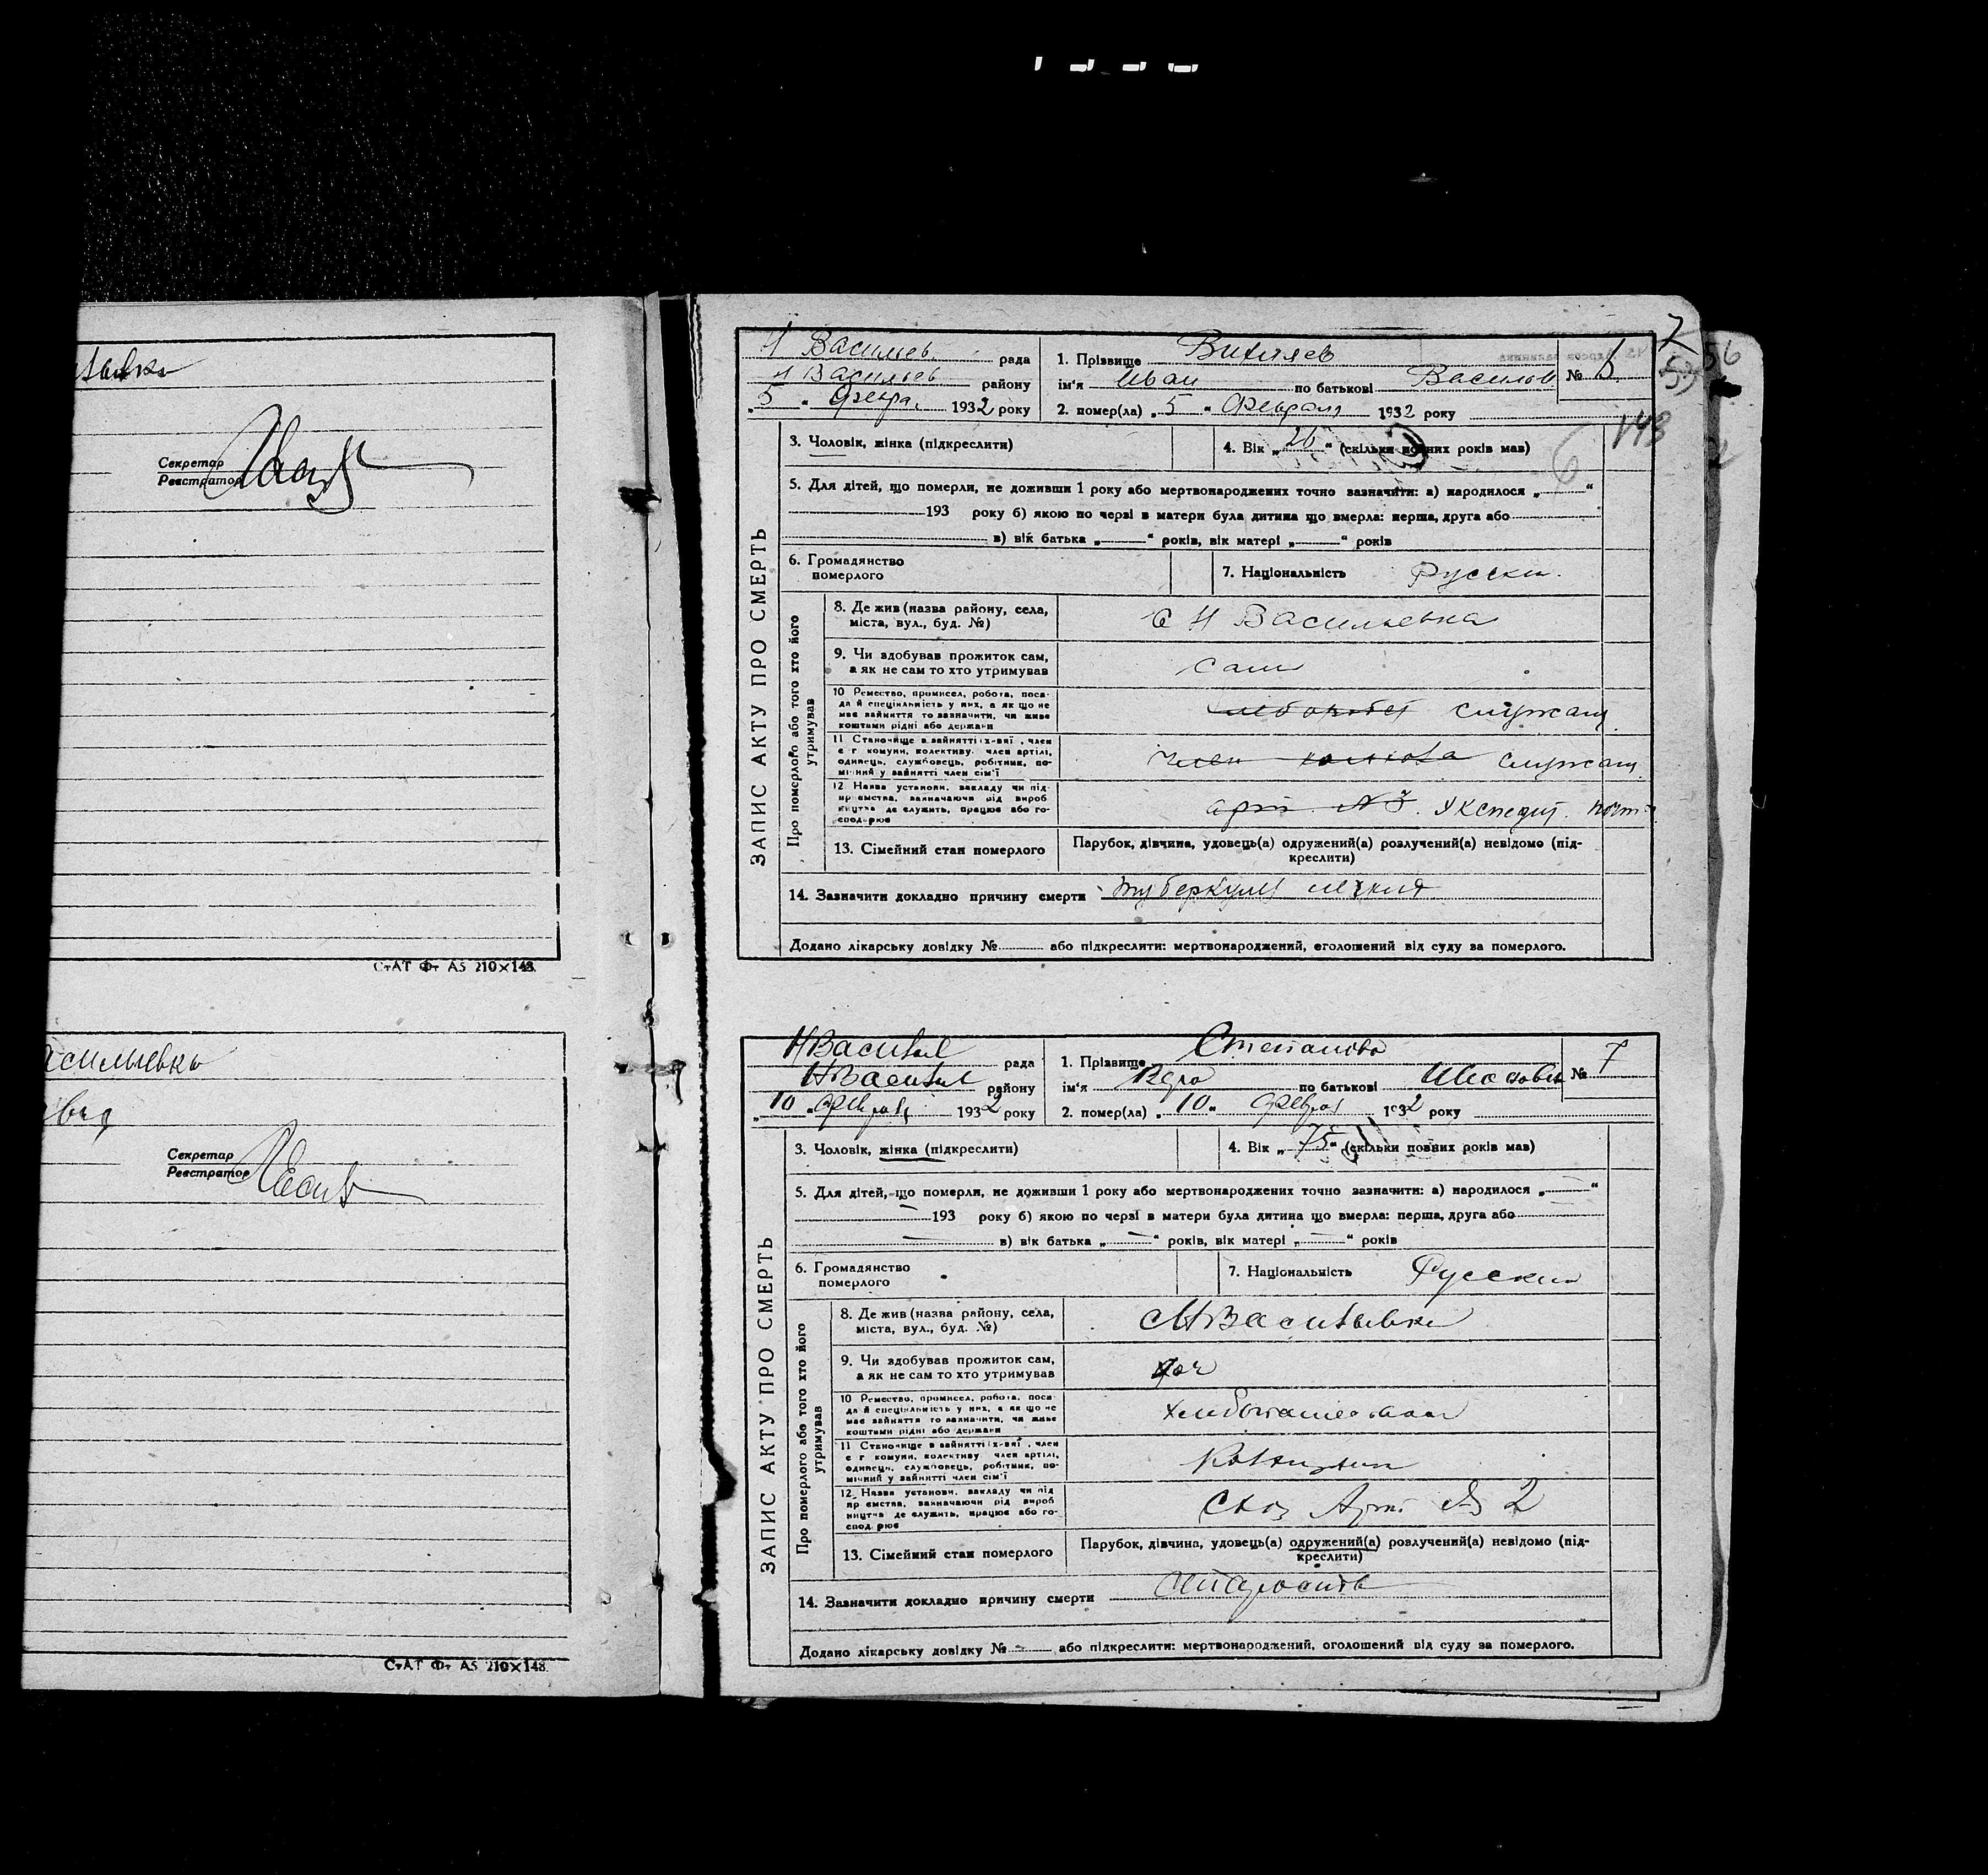 Секретар
Реєстратор
СтАТ Фт А5 210×148.
Васильевка
Секретар
Реєстратор
СтАТ Фт А5 210×148.
7
56
53
143
ЗАПИС АКТУ ПРО СМЕРТЬ
Н Васильев рада
Н Васильев району
„5“ Февра. 1932 року
1. Прізвище
ім'я Иван по батькові Василов
2. помер(ла) „5“ Февраля 1932 року
№ 6
3. Чоловік, жінка (підкреслити)
4. Вік „26“ (скільки повних років мав)
5. Для дітей, що померли, не доживши 1 року або мертвонароджених точно зазначити: а) народилося „ “
193 року б) якою по черзі в матери була дитина що вмерла: перша, друга або
в) вік батька „ “ років, вік матері „ “ років
6. Громадянство
померлого
7. Національність Русски.
Про померлого або того хто його
утримував
8. Де жив (назва району, села,
міста, вул., буд. №)
с Н Васильевка
9. Чи здобував прожиток сам,
а як не сам то хто утримував
сам
10 Ремество, промисел, робота, поса-
да й спеціяльність у них, а як що не
має зайняття то зазначити, чи живе
коштами рідні або держави
служащ
11 Становище в зайнятті:
є г комуни, колективу. член артілі,
одинець, службовець, робітник, по-
мічний у зайнятті член сім'ї
член колхоза служащ
12 Назва установи, закладу чи під-
приємства, зазначаючи рід вироб
ництва де служить, працює або го-
сподарює
арт №3. Экспедит. почт
13. Сімейний стан померлого
Парубок, дівчина, удовець(а) одружений(а) розлучений(а) невідомо (під-
креслити)
14. Зазначити докладно причину смерти туберкулез легких
Додано лікарську довідку № або підкреслити: мертвонароджений, оголошений від суду за померлого.
ЗАПИС АКТУ ПРО СМЕРТЬ
НВасильев рада
НВасильев району
„10“ февраля 1932 року
1. Прізвище Степанова
ім'я по батькові
2. помер(ла) „10“ феврал 1932 року
№ 7
3. Чоловік, жінка (підкреслити)
4. Вік „75“ (скільки повних років мав)
5. Для дітей, що померли, не доживши 1 року або мертвонароджених точно зазначити: а) народилося „—“
— 193 року б) якою по черзі в матери була дитина що вмерла: перша, друга або
— в) вік батька „—“ років, вік матері „—“ років
6. Громадянство
померлого
7. Національність Русский
Про померлого або того хто його
утримував
8. Де жив (назва району, села,
міста, вул., буд. №)
с НВасильевка
9. Чи здобував прожиток сам,
а як не сам то хто утримував
10 Ремество, промисел, робота, поса-
да й спеціяльність у них, а як що не
має зайняття то зазначити, чи живе
коштами рідні або держави
11 Становище в зайнятті:
є г комуни, колективу член артілі,
одинець, службовець, робітник, по-
мічний у зайнятті член сім'ї
12. Назва установи, закладу чи під
приємства, зазначаючи рід вироб
ництва де служить, працює або го-
сподарює
Схоз Арт. № 2
13. Сімейний стан померлого
Парубок, дівчина, удовець(а) одружений(а) розлучений(а) невідомо (під-
креслити)
14. Зазначити докладно причину смерти старость
Додано лікарську довідку № — або підкреслити: мертвонароджений, оголошений від суду за померлого.